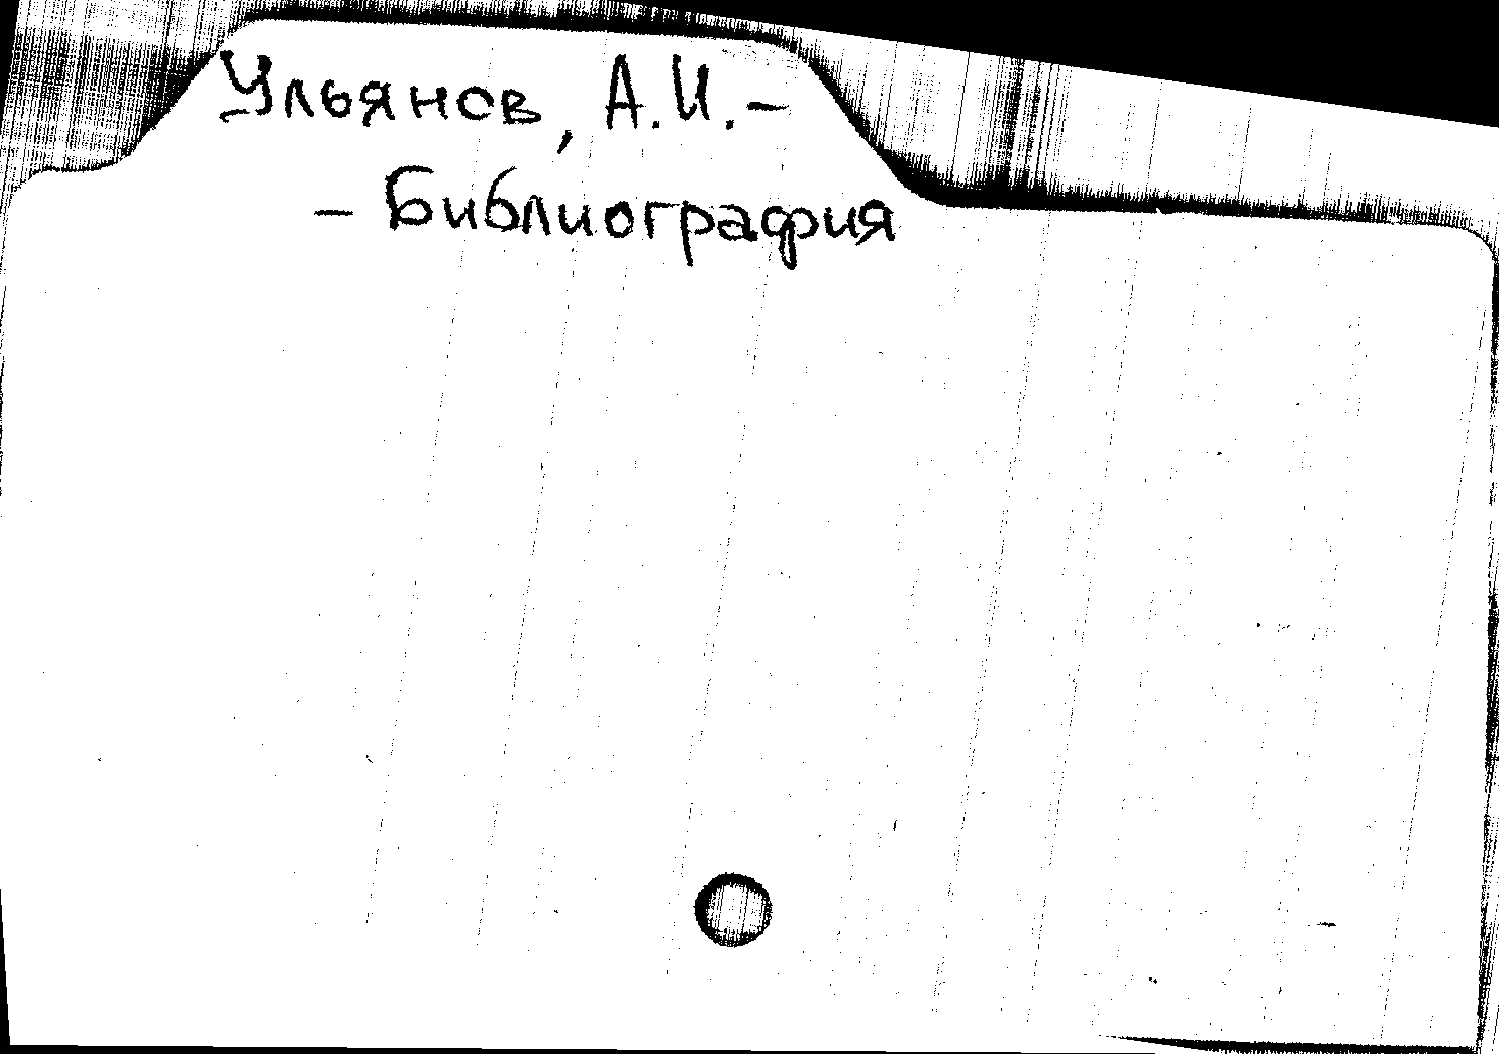 Ульянов, А.И.-
- Библиография